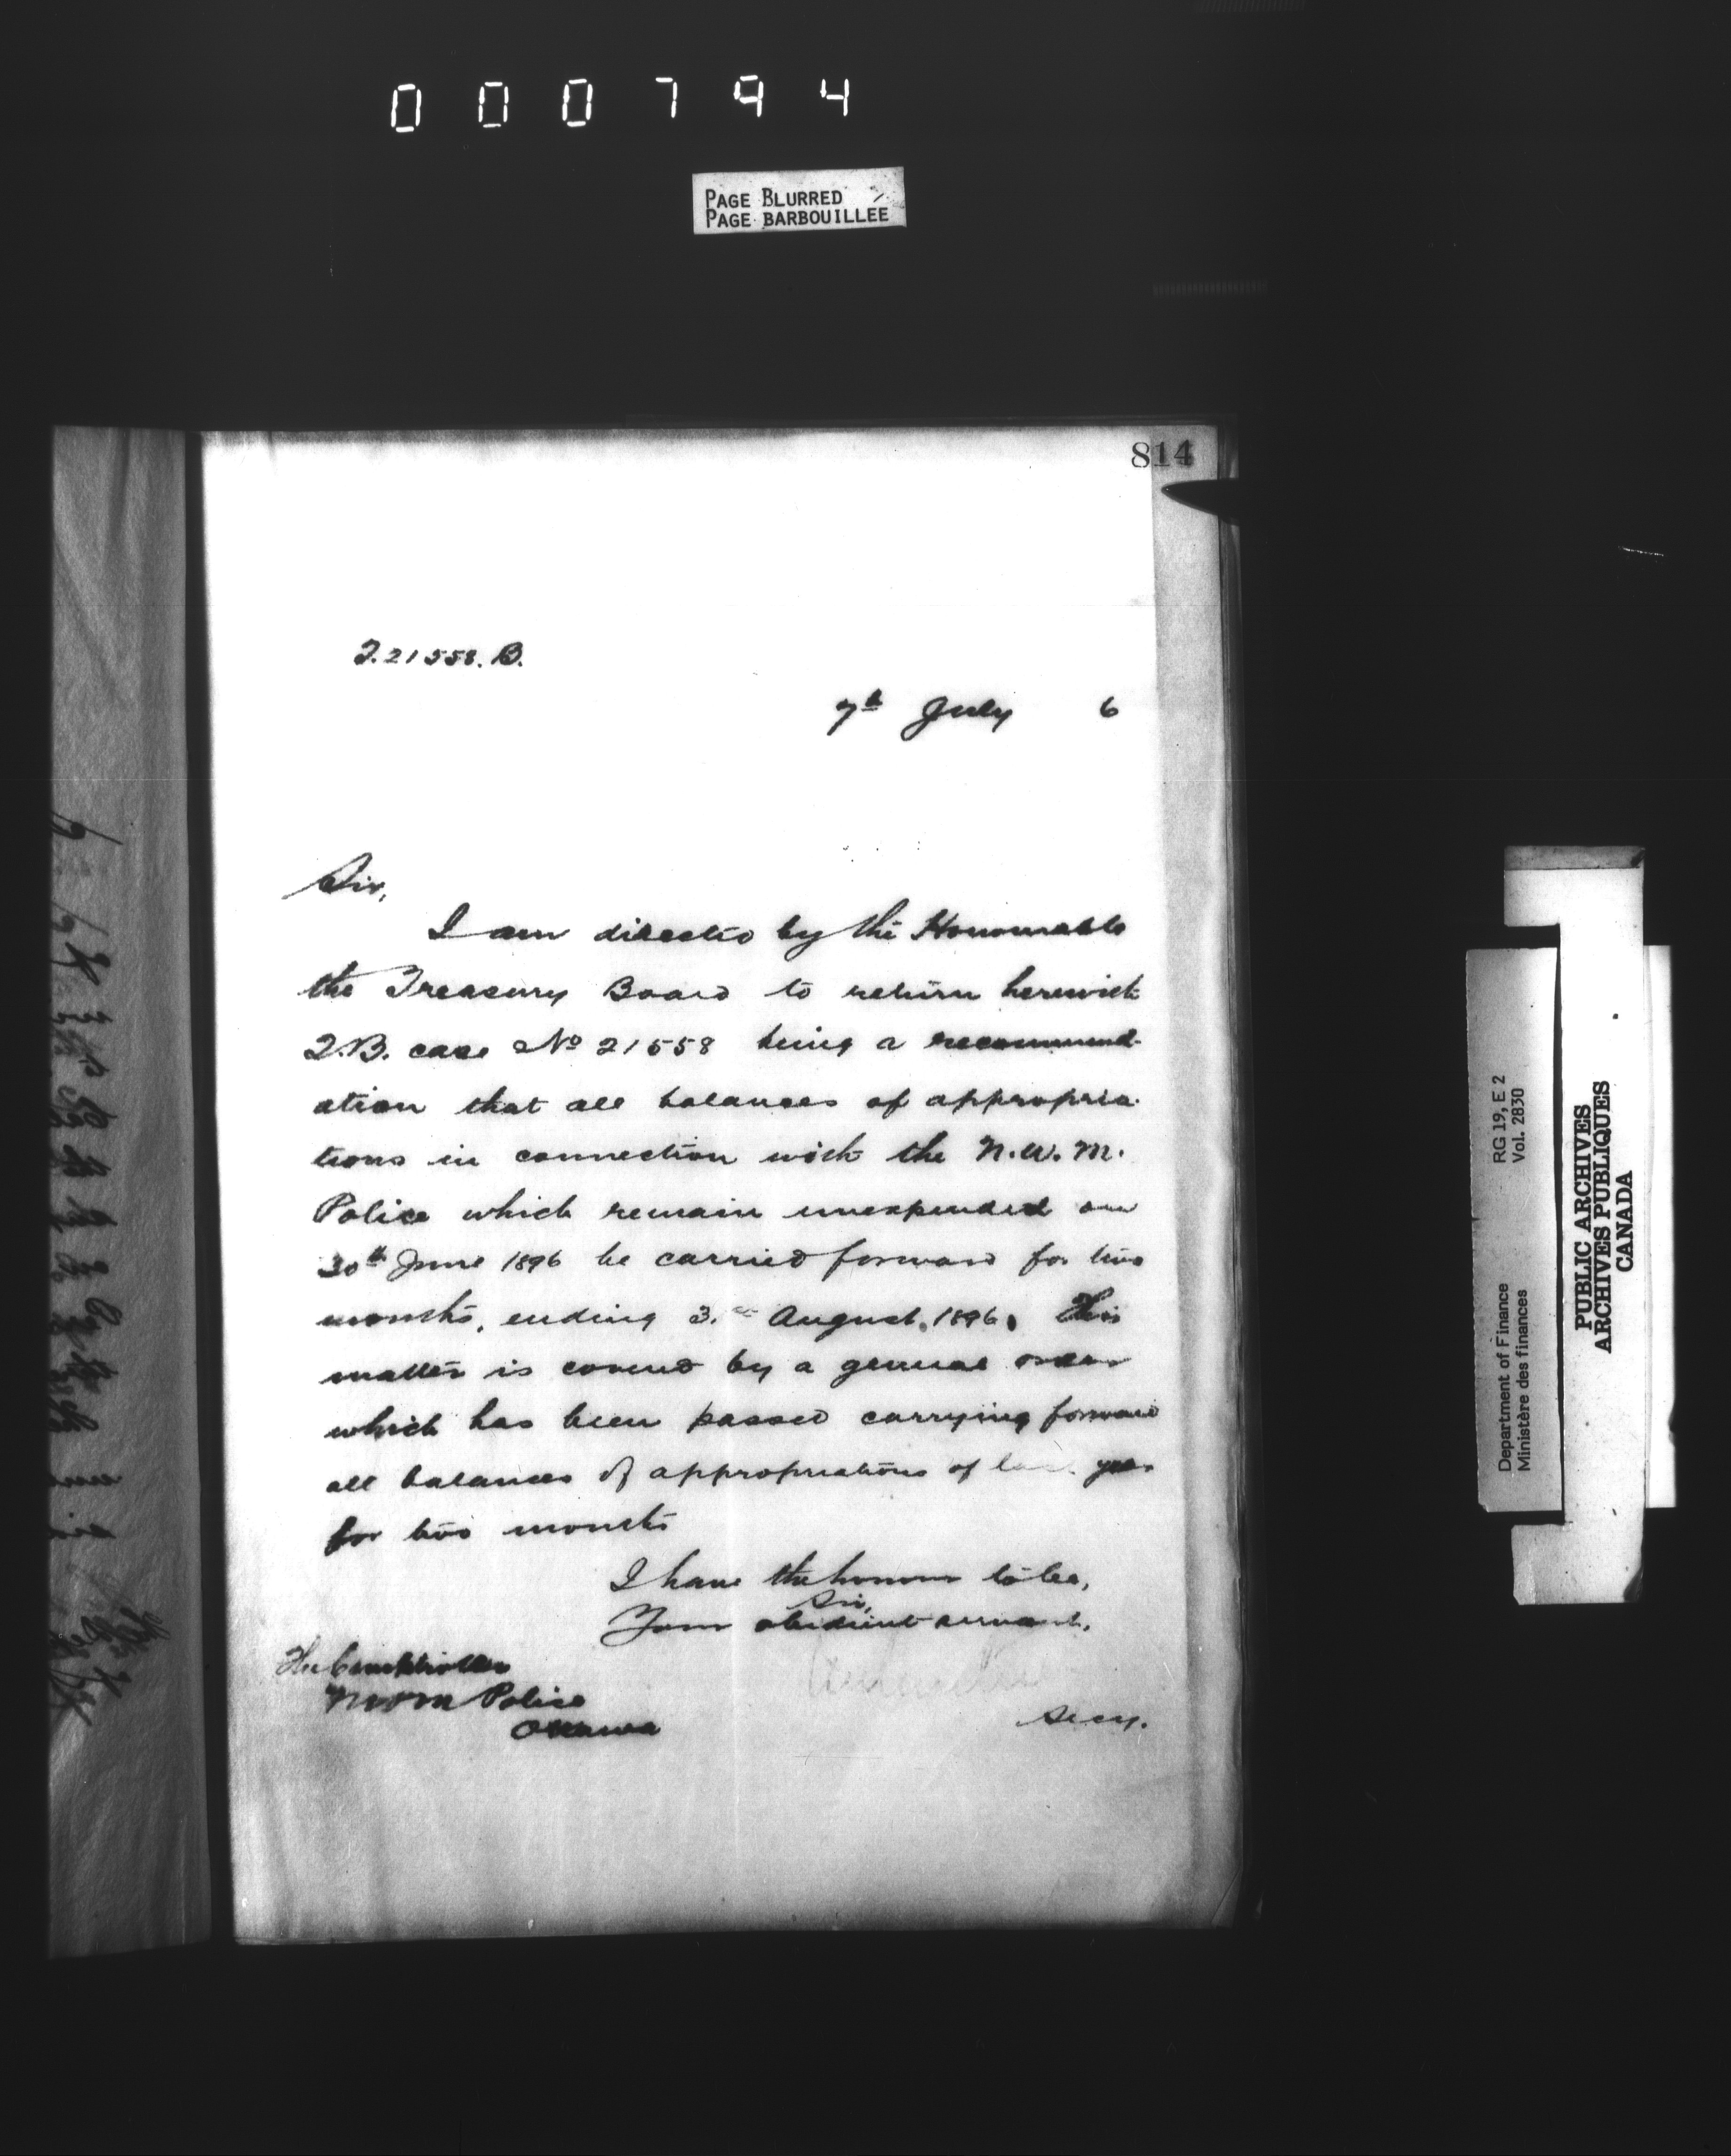 000794
PAGE BLURRED
PAGE BARBOUILLEE
814
T.21558.B.
7th July 6
Sir,
I am directed by the Honourable
the Treasury Board to return herewith
T.B. case No 21558 being a recommend-
ation that all balances of appropria-
tions in connection with the N.W.M.
Police which remain unexpended on
30th June 1896 be carried forward for two
months, ending 3. August, 1896. This
matter is covered by a general order
which has been passed carrying forward
all balances of appropriations of last year
for two months
I have the honour to be,
Sir,
Your obedient servant,
The Comptroller
NWM Police
Ottawa
Secy.
RG 19, E 2
Vol. 2830
Department of Finance
Ministère des finances
PUBLIC ARCHIVES
ARCHIVES PUBLIQUES
CANADA